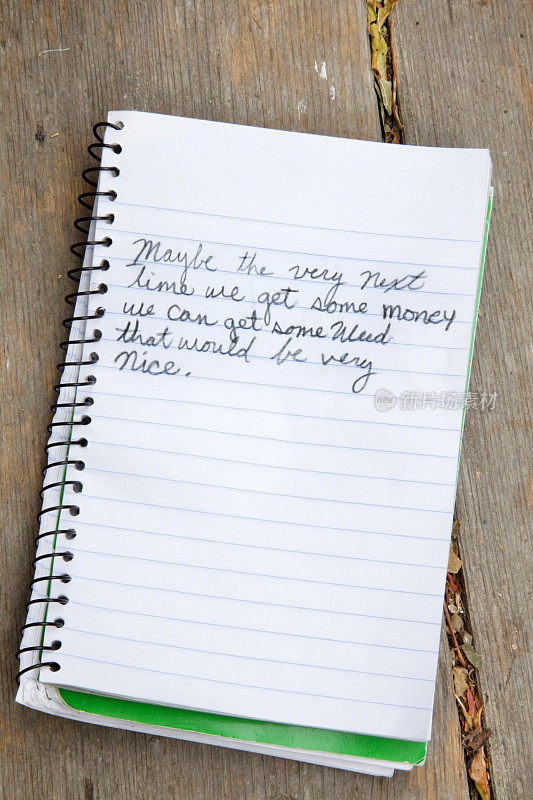 Maybe the very next
time we get some money
we can get some Weed
that would be very
Nice.
new 新片场图片